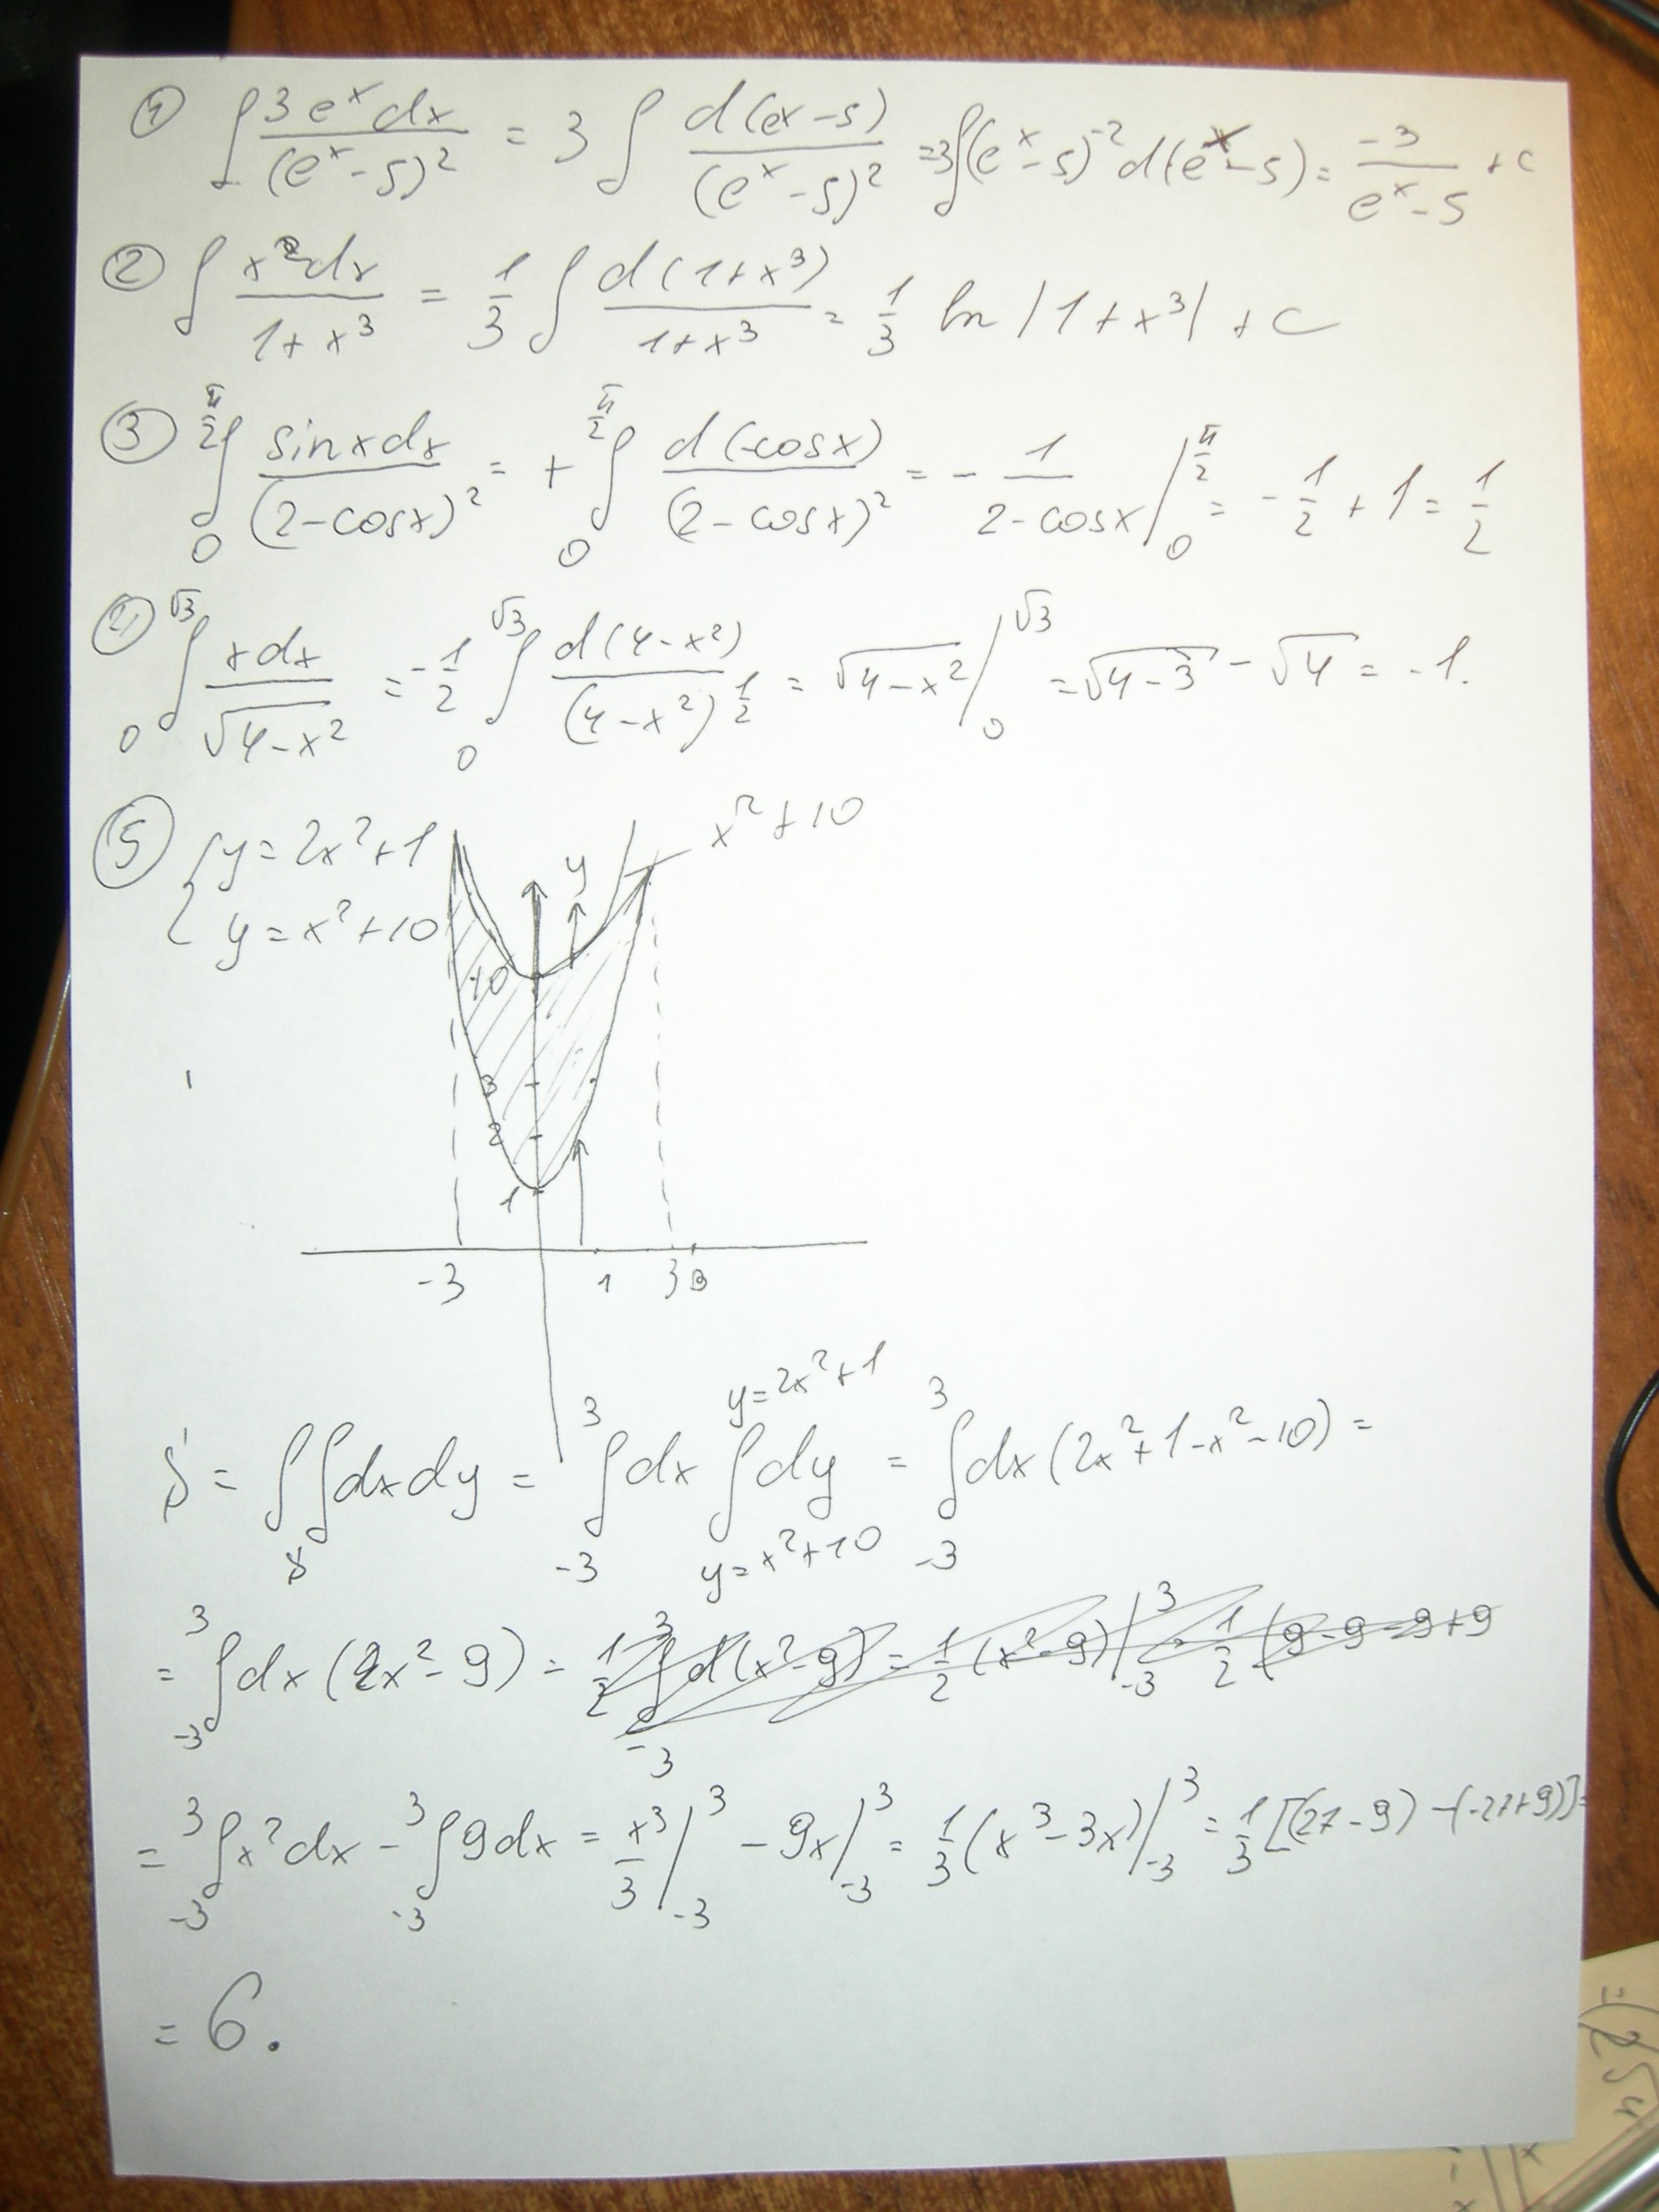 ① ∫ 3eˣdx/(eˣ-5)² = 3 ∫ d(eˣ-5)/(eˣ-5)² = 3∫(eˣ-5)⁻²d(eˣ-5) = -3/(eˣ-5) + c
② ∫ x²dx/(1+x³) = 1/3 ∫ d(1+x³)/(1+x³) = 1/3 ln|1+x³| + C
③ ∫₀^(π/2) sinxdx/(2-cosx)² = + ∫₀^(π/2) d(-cosx)/(2-cosx)² = - 1/(2-cosx) |₀^(π/2) = -1/2 + 1 = 1/2
④ ∫₀^√3 xdx/√(4-x²) = -1/2 ∫₀^√3 d(4-x²)/(4-x²)^(1/2) = √(4-x²) |₀^√3 = √(4-3) - √4 = -1.
⑤ { y = 2x²+1
y = x²+10
x²+10
y
10
3
2
1
-3 1 3 3
S = ∫∫dxdy = ∫₋₃³ dx ∫_(y=x²+10)^(y=2x²+1) dy = ∫₋₃³ dx (2x²+1-x²-10) =
= ∫₋₃³ dx (x²-9) = 1/2 ∫₋₃³ d(x²-9) = 1/2 (x²-9)|₋₃³ = 1/2 (9-9-9+9
= ∫₋₃³ x²dx - ∫₋₃³ 9dx = x³/3 |₋₃³ - 9x |₋₃³ = 1/3 (x³-3x)|₋₃³ = 1/3 [(27-9) -(-27+9)] =
= 6.